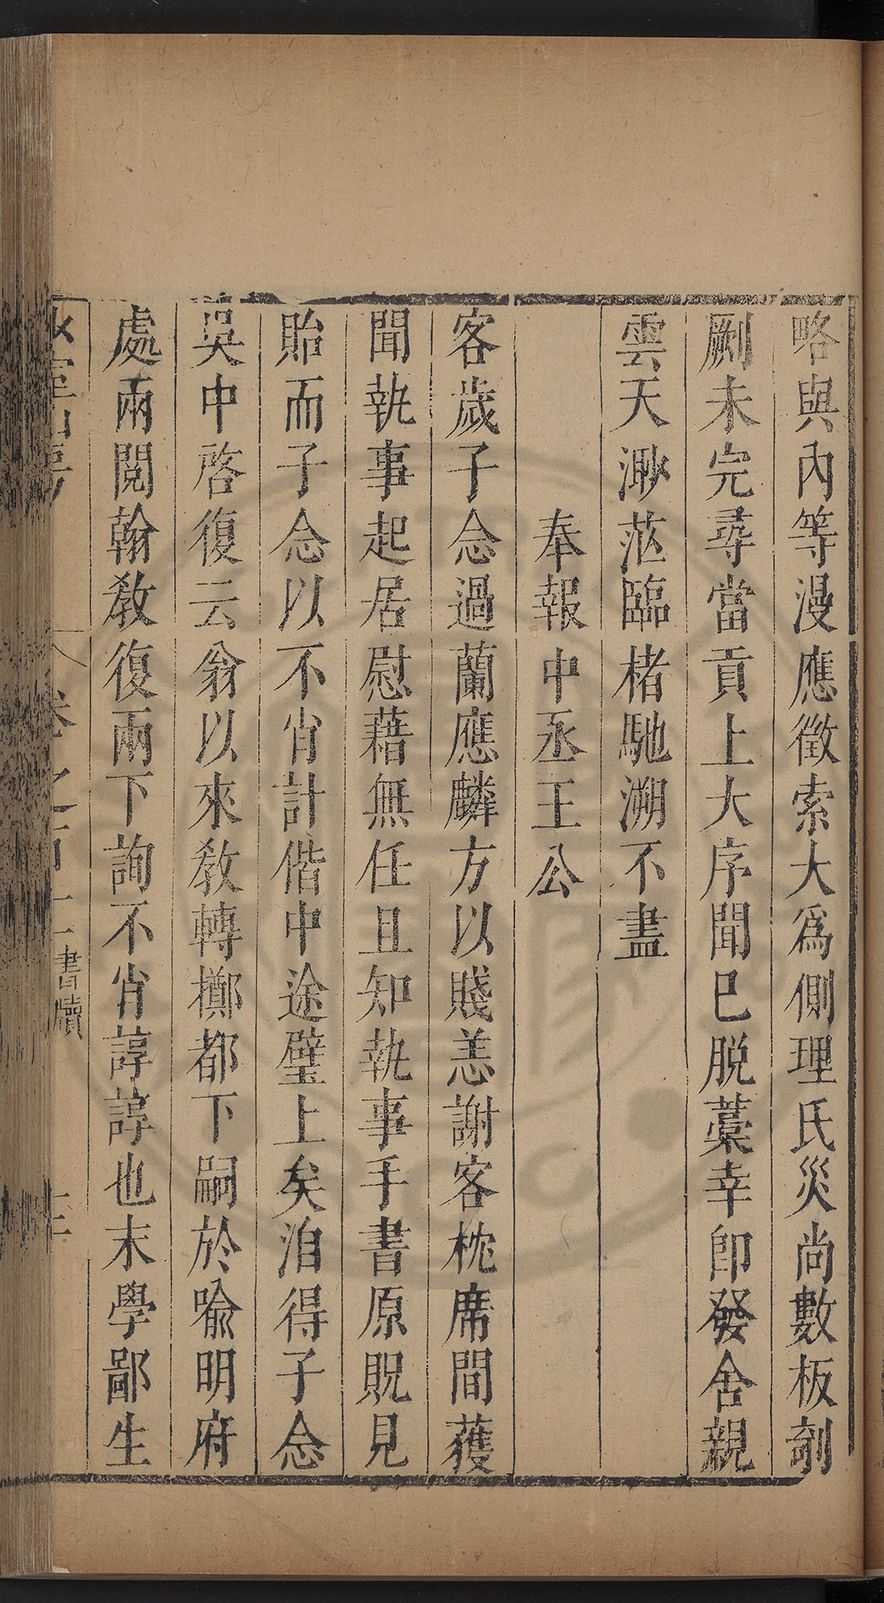 略與內等漫應徵索大為側理氏災尚數板剞
劂未完尋當貢上大序聞已脫藁幸即發舍親
雲天渺茫臨楮馳溯不盡
奉報中丞王公
客歲子念過蘭應麟方以賤恙謝客枕席間獲
聞執事起居慰藉無任且知執事手書原貺見
貽而子念以不肖計偕中途璧上矣洎得子念
吳中啓復云翁以來教轉擲都下嗣於喻明府
處兩閱翰教復兩下詢不肖諄諄也末學鄙生
卷之百十二 書牘